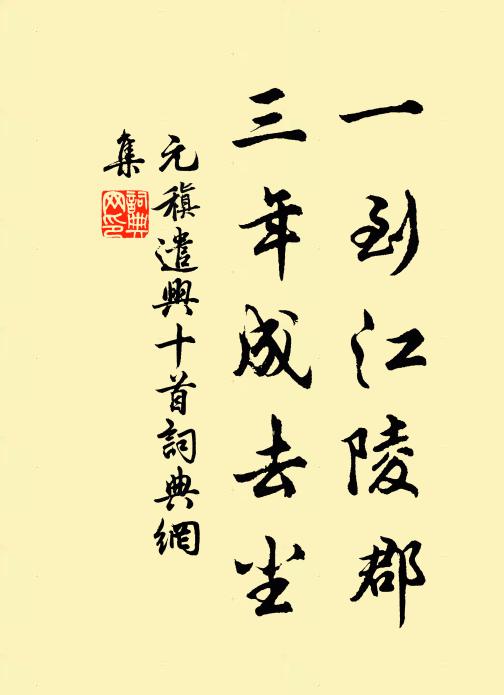 一到江陵郡
三年成去尘
元稹遣興十首詞典網
集
詞典網印